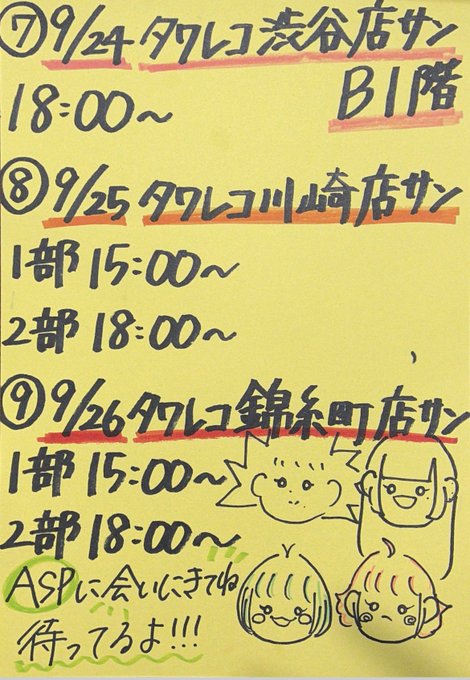 ⑦9/24 タワレコ渋谷店サン
18:00〜 B1階
⑧9/25 タワレコ川崎店サン
1部 15:00〜
2部 18:00〜
⑨9/26 タワレコ錦糸町店サン
1部 15:00〜
2部 18:00〜
ASPに会いにきてね
待ってるよ!!!